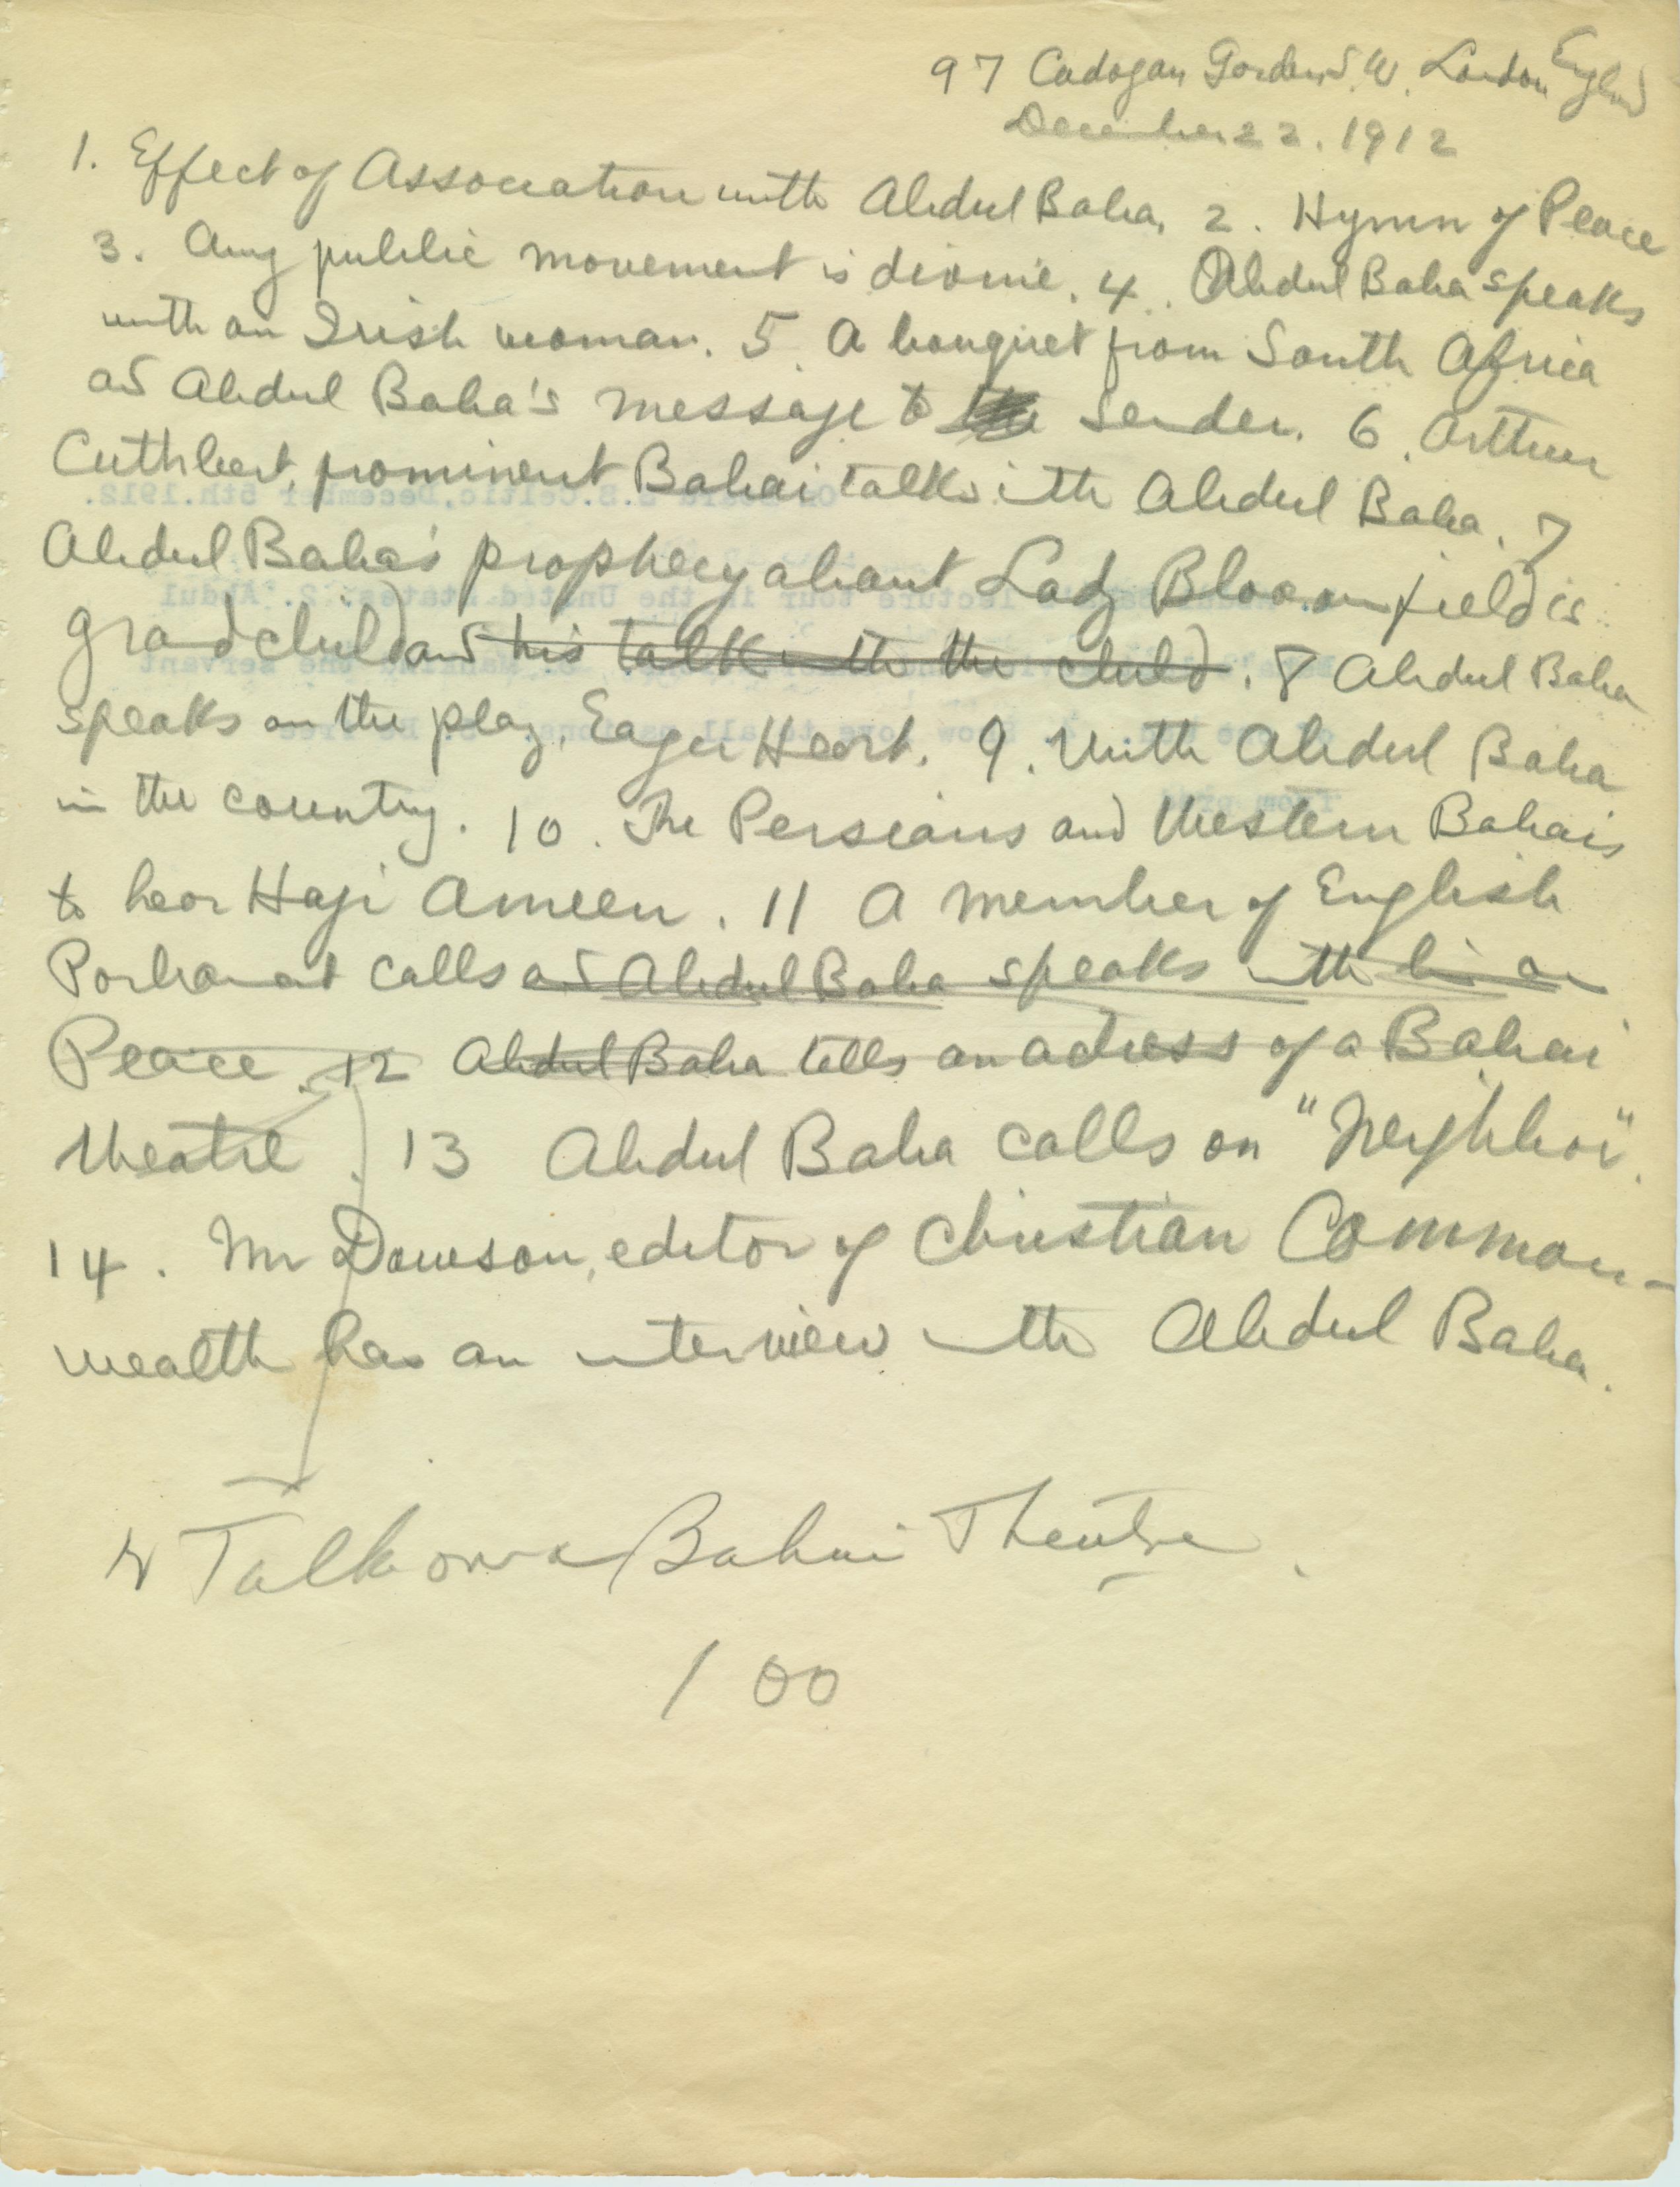 97 Cadogan Gardens S.W. London England
December 22. 1912
1. Effect of Association with Abdul Baha. 2. Hymn of Peace
3. Any public movement is divine. 4. Abdul Baha speaks
with an Irish woman. 5 A bouquet from South Africa
and Abdul Baha's message to the sender. 6. Arthur
Cuthbert, prominent Bahai talks with Abdul Baha. 7
Abdul Baha's prophecy about Lady Bloomfield's
grandchild and his talk with the child. 8 Abdul Baha
speaks on the play, Eager Heart. 9. With Abdul Baha
in the country. 10. The Persians and Western Bahais
to hear Haji Ameen. 11 A member of English
Parliament calls and Abdul Baha speaks with him on
Peace. 12 Abdul Baha tells an adress of a Bahai
theatre. 13 Abdul Baha calls on "Neighbor".
14. Mr Dawson, editor of Christian Common-
wealth has an interview with Abdul Baha.
Talk on a Bahai Theatre.
100
On board S.S. Celtic, December 5th. 1912.
lecture tour in the United States. 2. Abdul
the servant
from